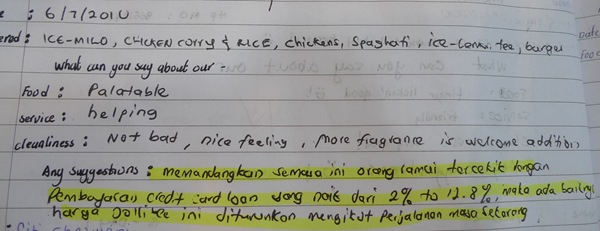 : 6/7/2010
ered: ICE-MILO, CHICKEN CURRY & RICE, chickens, Spaghati, ice-lemon tea, burger
what can you say about our -
Food : Palatable
service : helping
cleanliness : Not bad, nice feeling, more fragrance is welcome addition
Any suggestions : memandangkan semasa ini orang ramai tercekit dengan
Pembayaran credit card loan yang naik dari 2% to 12.8%, maka ada baiknya
harga ini diturunkan mengikut perjalanan masa sekarang.